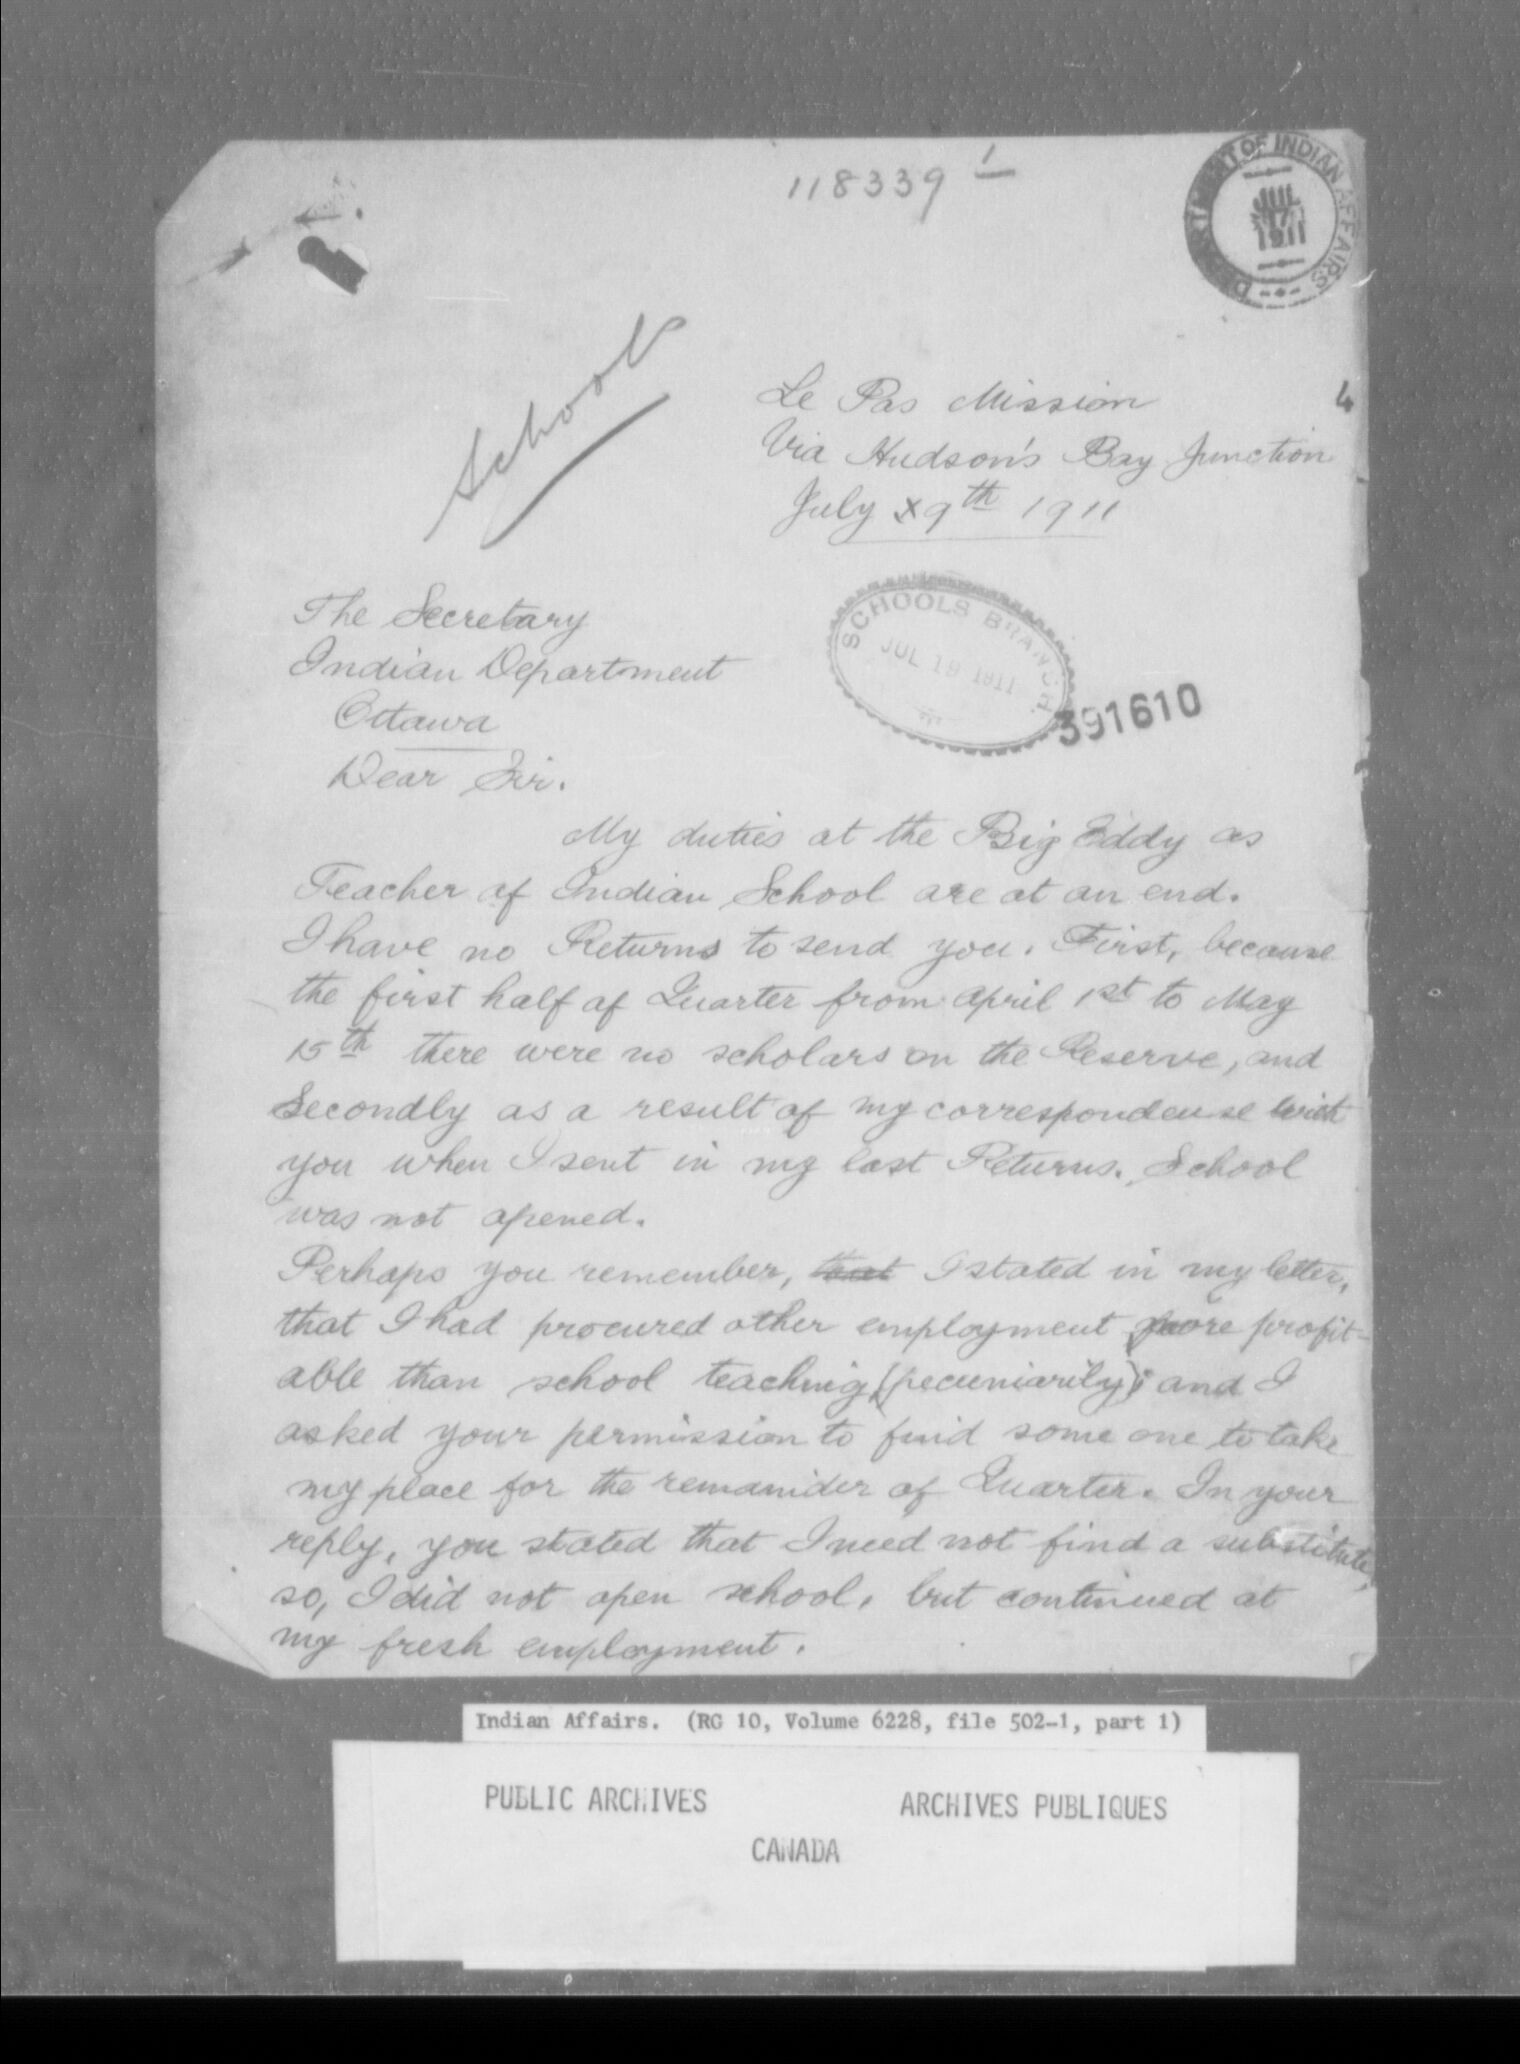 118339 1
DEPARTMENT OF INDIAN AFFAIRS
17
1911
School
Le Pas Mission
4
Via Hudson's Bay Junction
July 9th 1911
The Secretary
Indian Department
Ottawa
SCHOOLS BRANCH.
JUL 19 1911
391610
Dear Sir.
My duties at the Big Eddy as
Teacher of Indian School are at an end.
I have no Returns to send you. First, because
the first half of Quarter from April 1st to May
15th there were no scholars on the Reserve, and
Secondly as a result of my correspondense with
you when I sent in my last Returns. School
was not opened.
Perhaps you remember, that I stated in my letter,
that I had procured other employment more profit-
able than school teaching (pecuniarily); and I
asked your permission to find some one to take
my place for the remainder of Quarter. In your
reply, you stated that I need not find a substitute,
so, I did not open school, but continued at
my fresh employment.
Indian Affairs. (RG 10, Volume 6228, file 502-1, part 1)
PUBLIC ARCHIVES ARCHIVES PUBLIQUES
CANADA